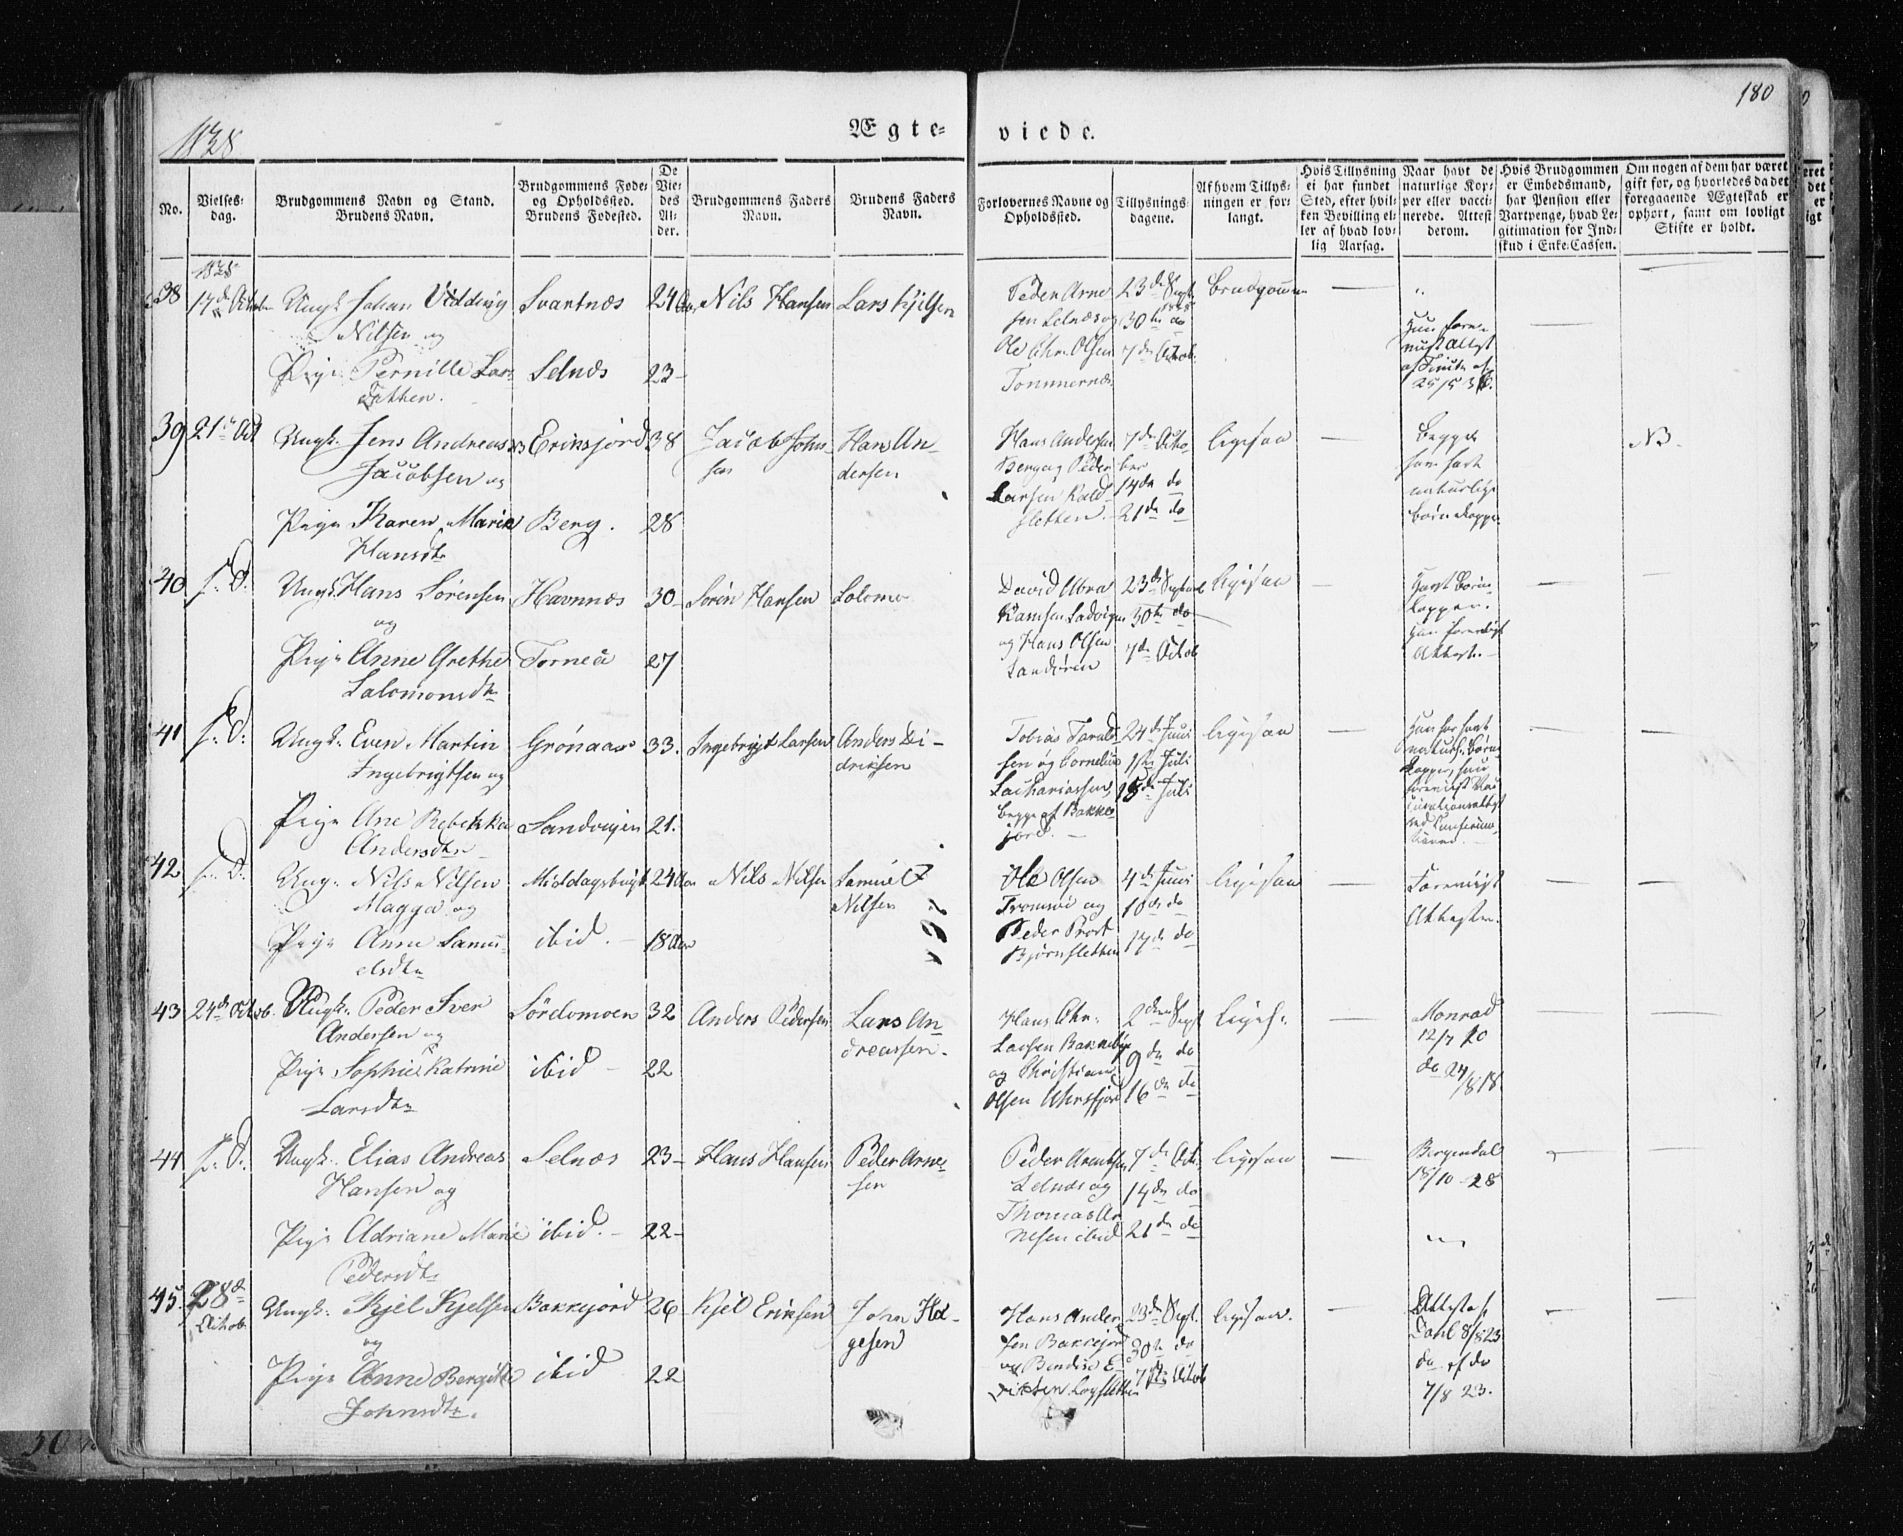 180
1838
Ægteviede.
No.
Vielsesdag.
Brudgommens Navn og Stand.
Brudens Navn.
Brudgommens Føde- og Opholdssted.
Brudens Fødested.
De Viedes Alder.
Brudgommens Faders Navn.
Brudens Faders Navn.
Forlovernes Navne og Opholdssted.
Tillysningsdagene.
Af hvem Tillysningen er forlangt.
Hvis Tillysning ei har fundet Sted, efter hvilken Bevilling eller af hvad lovlig Aarsag.
Naar havt de naturlige Kopper eller vaccinerede. Attest derom.
Hvis Brudgommen er Embedsmand, har Pension eller Vartpenge, hvad Legitimation for Indskud i Enke-Cassen.
Om nogen af dem har været gift før, og hvorledes da det foregaaende Ægteskab er ophørt, samt om lovligt Skifte er holdt.
38 17de Octob. Ungk. Johan Vidding Svartnæs 24 Aar Nils Hansen Lars Kjilsen
Nilsen og
Pige Pernille Lars- Selnæs 23
datter.
Peder Arnesen Selnæs og Ole Chr. Olsen Tommernæs
23de Sept.
30te do
7de Octob.
Brudgommen
39 21de Oct Ungk. Jens Andreas Eriksfjord 38 Jacob Johnsen Hans Andersen
Jacobsen og
Pige Karen Marie Berg. 28
Hansdtr
Hans Andersen Berg og Peder Larsen Kaldsletten.
7de October
14de do
21de do
ligesaa
begge
have havt
naturlige
Børnekopper
NB.
40 s. D. Ungk. Hans Sørensen Havnnæs 30 Sørin Hansen Salomo
og
Pige Anne Grethe Torneå 27
Salomonsdtr
David Abrahamsen Sadvigen og Hans Olsen Sandøren
23de Septb
30te do
7de Octob
ligesaa
41 s. D. Ungk. Even Martin Grønaas 33. Ingebrigt Larsen Anders Didriksen
Ingebrigtsen og
Pige Ane Rebekka Sandvigen 21.
Andersdtr
Tobias Taraldsen og Cornelius Zachariassen, begge af Bakkejord.
24de Juni
1ste Juli
8de Juli
ligesaa
42 s. D. Ung. Nils Nilsen Middagsbugt 24 Aar Nils Nilsen Samuel Nilsen
Magga og
Pige Anne Samuelsdtr ibid. 18 Aar
Ole Olsen Tromsøe og Peder Prost Bjørnsletten
4de Juni
10de do
17de do
ligesaa
Foreviist
Attester.
43 24de Octob. Ungk. Peder Iver Sørdomoen 32 Anders Pedersen Lars Andreassen.
Andersen og
Pige Sophie Katrine ibid 22
Larsdtr
Hans Chr. Larsen Bakkeby og Christian Olsen
2den Sept
9de do
16de do
liges.
Monrad
12/7 20
do 24/8 18
44 s. D. Ungk. Elias Andreas Selnæs 23 Hans Hansen Peder Arnesen
Hansen og
Pige Adriane Marie ibid. 22
Pedersdtr
Peder Arentsen Selnæs og Thomas Arnesen ibid
7de Oct.
14de do
21de do
ligesaa
Bergendal
18/10 28
45. 28de Octob. Ungk. Kjel Kjelsen Bakkejord 26 Kjel Eriksen John Helgesen
og
Pige Anne Bergitte ibid 22
Johnsdtr.
Hans Andersen Bakkejord
23de Sept.
30te do
7de Octob
ligesaa.
Attest af
Dahl 8/8 23
do af do
7/8 23.